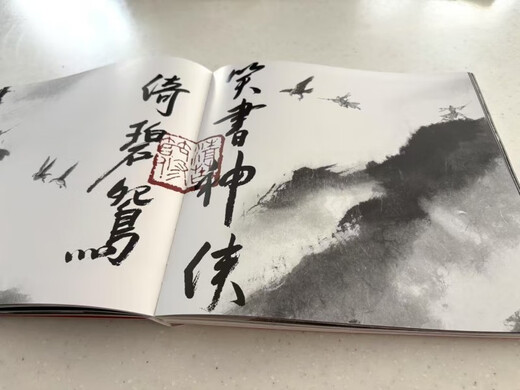 笑書神俠
倚碧鴛